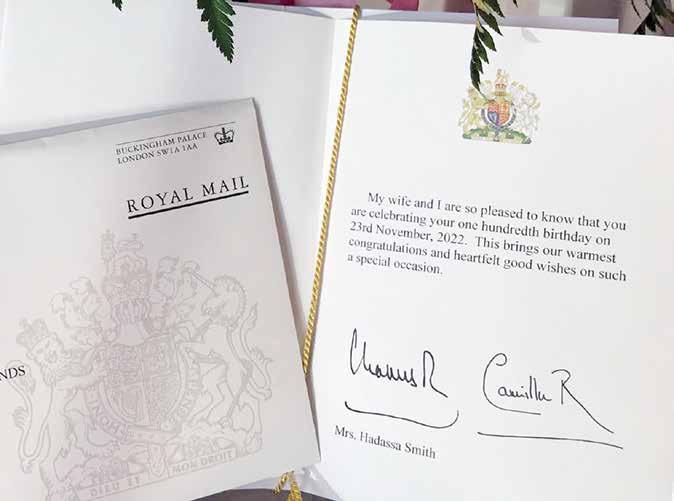 BUCKINGHAM PALACE
LONDON SW1A 1AA
ROYAL MAIL
NDS
DIEU ET MON DROIT
My wife and I are so pleased to know that you
are celebrating your one hundredth birthday on
23rd November, 2022. This brings our warmest
congratulations and heartfelt good wishes on such
a special occasion.
Charles R
Camilla R
Mrs. Hadassa Smith